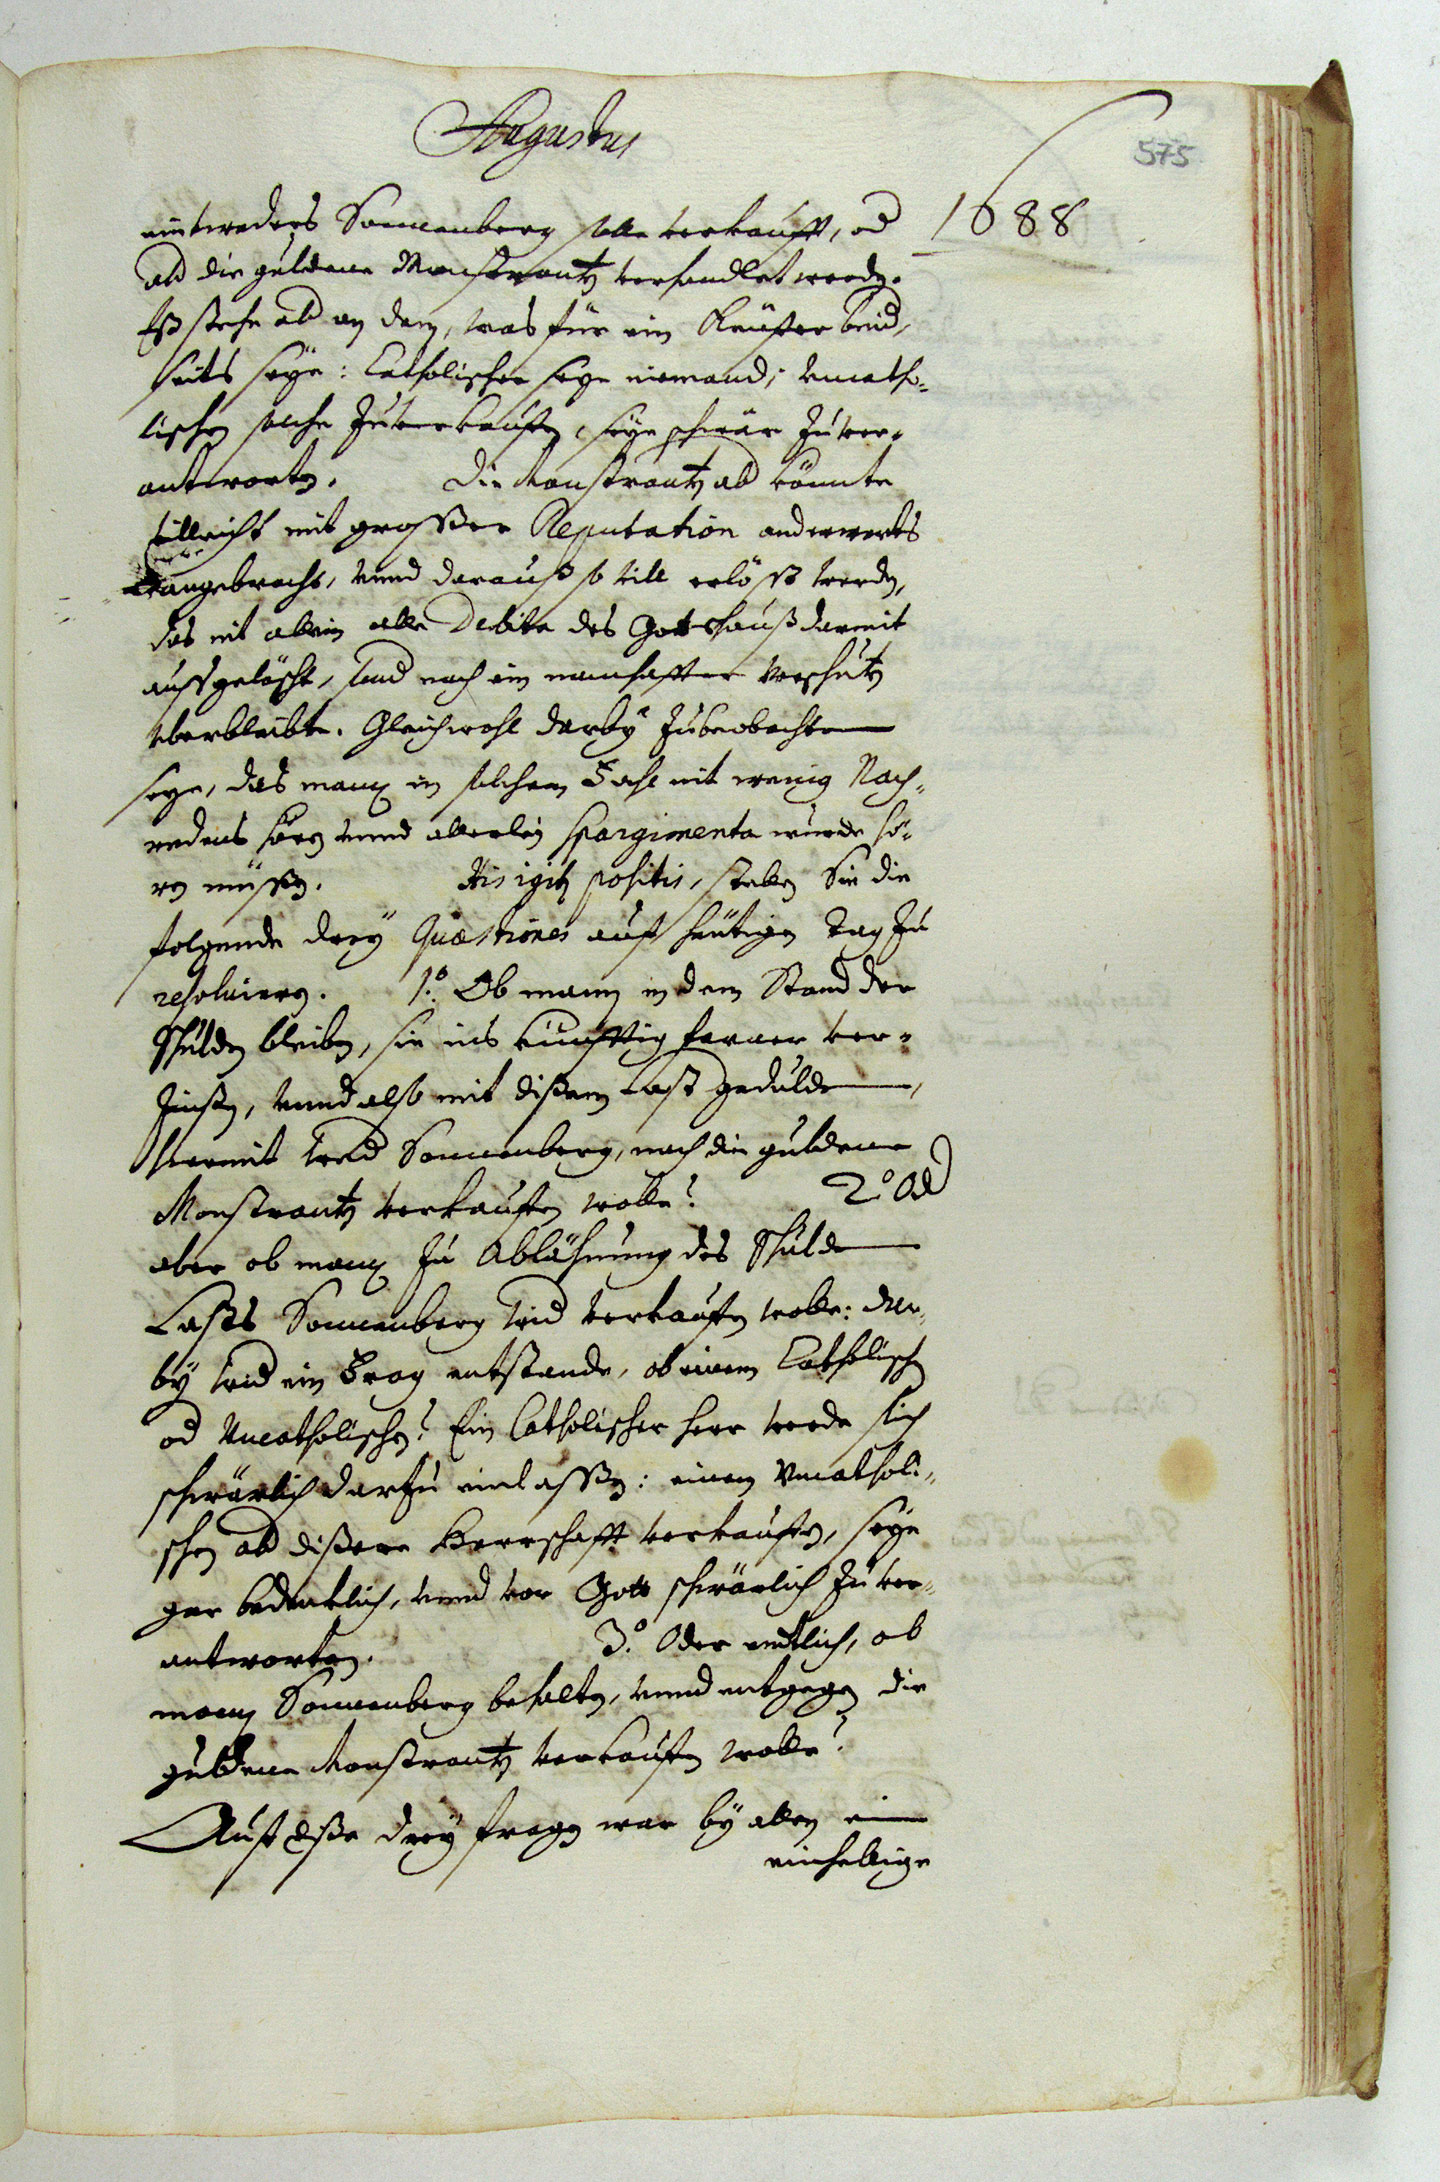 Augustus
575
1688
eintweders Sonnenberg solle verkaufft, od
ab die guldene Monstrantz verhandlet werdn.
Eß stehe ab an dem, was für ein Käuffer beid,
seits seÿe: Catholischer seye niemand; Vncatho-
lischen solche zuverkauffen, seÿe schwär zuver-
antworten. Die Monstrantz ab könnte
villeicht mit grosser Reputation anderwerts
angebracht, vnnd darauß so vill erlößt werden,
das nit allein alle Debita des Gottshauß darmit
außgelöscht, sond noch ein namhaffter Vorschutz
vberbleibte. Gleichwohl darbÿ zubeobachten
seye, das mann in solchem Fahl nit wenig Nach-
redens hören vnnd allerleÿ spargimenta wurde hö-
ren müssen. His igitr positis, stellen Sie die
folgende dreÿ Quæstiones auf heütigen Tag zu
resolvieren. 1.º Ob mann in dem Stand der
Schulden bleiben, sie ins künfftig ferner ver-
zinsen, vnnd also mit disem Last gedulden,
hiermit wed Sonnenberg, noch die guldene
Monstrantz verkauffen wolle? 2.º Od
aber ob mann zu Ablößnung des Schulden
Lasts Sonnenberg wid verkauffen wolle: dar-
bÿ wid ein Frag entstande, ob einem Catholischen
od Vncatholischen? Ein Catholischer Herr werde sich
schwärlich darzu einlassen: einem Vncatholi-
schen ab disere Herrschafft verkauffen, seÿe
gar bedenklich, vnnd vor Gott schwärlich zu ver-
antworten. 3.º Oder endtlich, ob
mann Sonnenberg behalten, vnnd entgegen die
guldene Monstrantz verkauffen wolle?
Auf dise dreÿ fragen war bÿ allen ein
einhellige